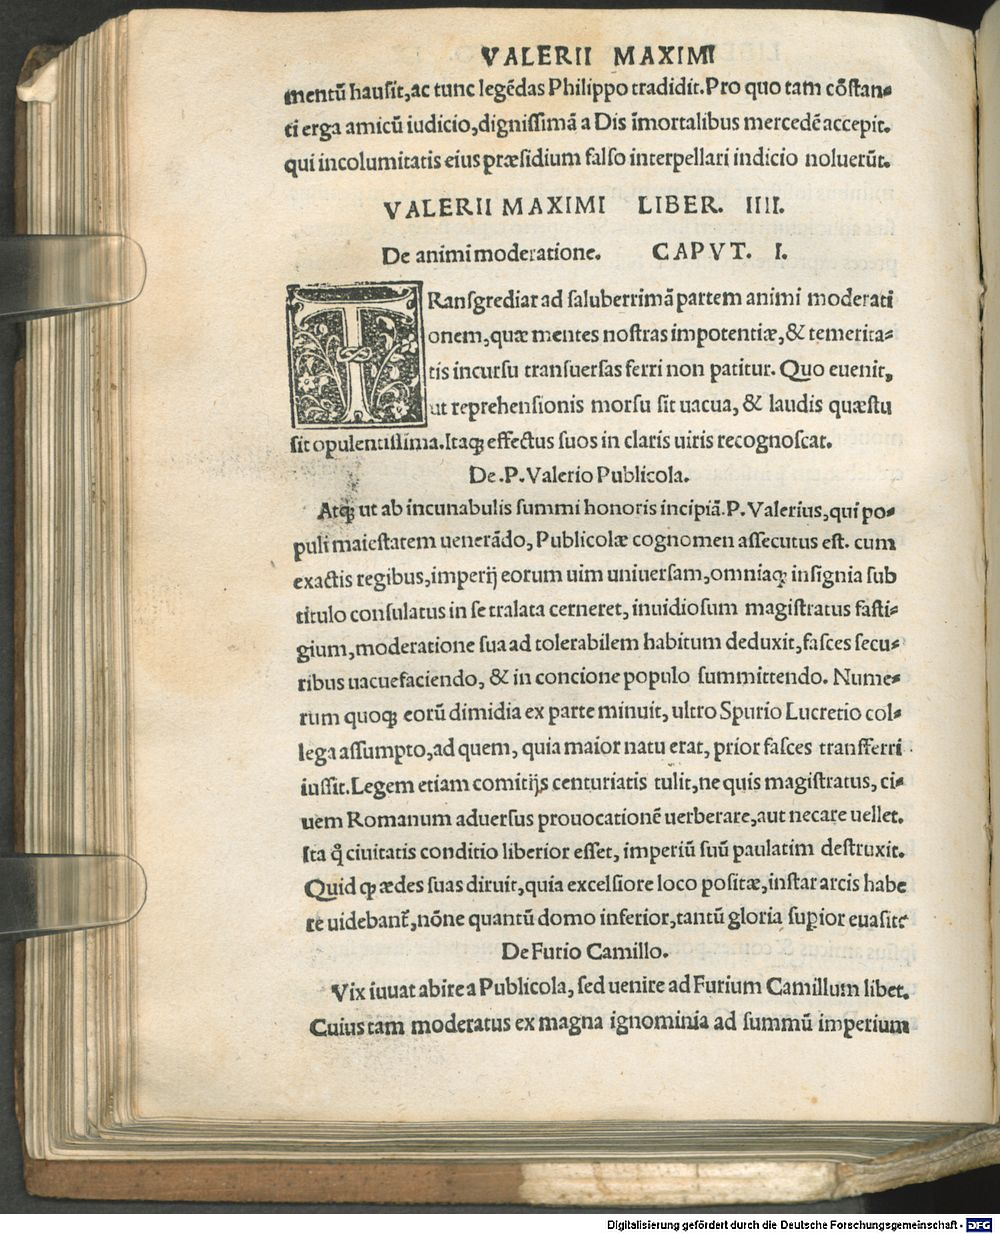 VALERII MAXIMI
mentū hausit, ac tunc legēdas Philippo tradidit. Pro quo tam cōstan-
ti erga amicū iudicio, dignissimā a Dis īmortalibus mercedē accepit.
qui incolumitatis eius præsidium falso interpellari indicio noluerūt.
VALERII MAXIMI LIBER. IIII.
De animi moderatione. CAPVT. I.
TRansgrediar ad saluberrimā partem animi moderati
onem, quæ mentes nostras impotentiæ, & temerita-
tis incursu transuersas ferri non patitur. Quo euenit,
ut reprehensionis morsu sit uacua, & laudis quæstu
sit opulentissima. Itaqꝫ effectus suos in claris uiris recognoscat.
De .P. Valerio Publicola.
Atqꝫ ut ab incunabulis summi honoris incipiā. P. Valerius, qui po-
puli maiestatem uenerādo, Publicolæ cognomen assecutus est. cum
exactis regibus, imperij eorum uim uniuersam, omniaqꝫ insignia sub
titulo consulatus in se tralata cerneret, inuidiosum magistratus fasti-
gium, moderatione sua ad tolerabilem habitum deduxit, fasces secu-
ribus uacuefaciendo, & in concione populo summittendo. Nume-
rum quoqꝫ eorū dimidia ex parte minuit, ultro Spurio Lucretio col-
lega assumpto, ad quem, quia maior natu erat, prior fasces transferri
iussit. Legem etiam comitijs centuriatis tulit, ne quis magistratus, ci-
uem Romanum aduersus prouocationē uerberare, aut necare uellet.
Ita ꝙ ciuitatis conditio liberior esset, imperiū suū paulatim destruxit.
Quid ꝙ ædes suas diruit, quia excelsiore loco positæ, instar arcis habe
re uidebant᷑, nōne quantū domo inferior, tantū gloria suꝑior euasit?
De Furio Camillo.
Vix iuuat abire a Publicola, sed uenire ad Furium Camillum libet.
Cuius tam moderatus ex magna ignominia ad summū imperium
Digitalisierung gefördert durch die Deutsche Forschungsgemeinschaft - DFG